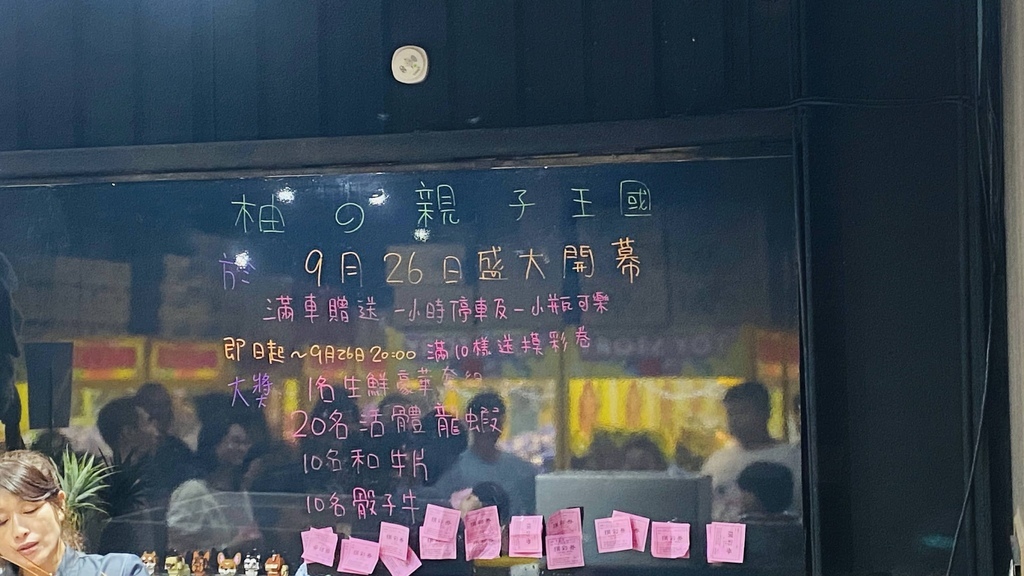 柚の親子王國
於 9月26日盛大開幕
滿車贈送一小時停車及一小瓶可樂
即日起~9月26日20:00 滿10樣送摸彩卷
大獎 1名生鮮豪華套組
20名活體龍蝦
10名和牛片
10名骰子牛